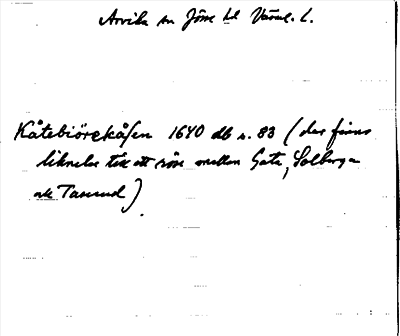 Arvika sn Jösse hd Värml. l.
Kåtebiörekåsen 1640 db s. 83 (der finns
liknelse till ett röse mellan Gata, Solberga
och Tasund)